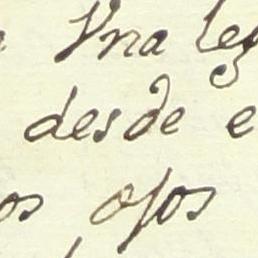 Una leg
desde e
os ojos